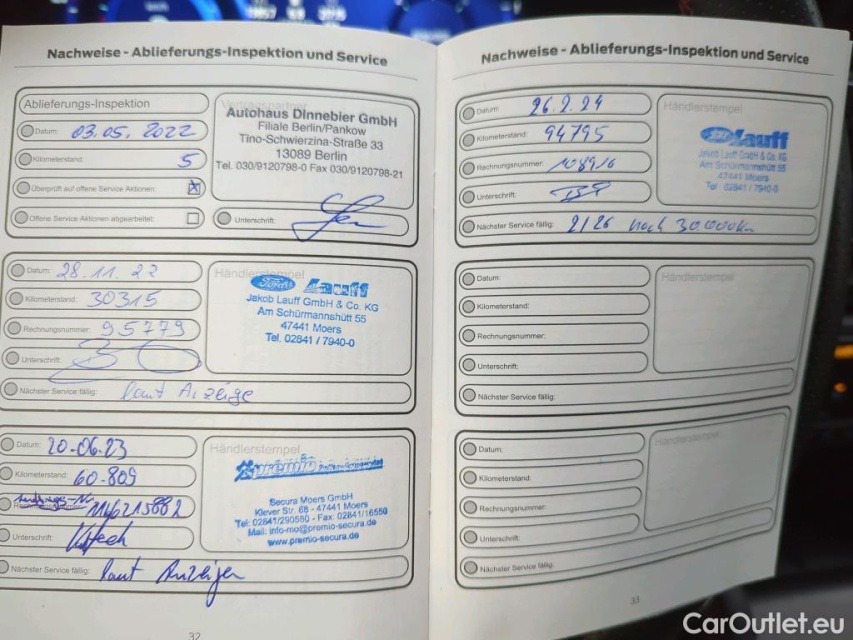 Nachweise - Ablieferungs-Inspektion und Service
Ablieferungs-Inspektion
Datum: 03.05.2022
Kilometerstand: 5
Überprüft auf offene Service Aktionen: X
Offene Service Aktionen abgearbeitet:
Vertragspartner
Autohaus Dinnebier GmbH
Filiale Berlin/Pankow
Tino-Schwierzina-Straße 33
13089 Berlin
Tel. 030/9120798-0 Fax 030/9120798-21
Unterschrift:
Datum: 28.11.22
Kilometerstand: 30315
Rechnungsnummer: 95779
Unterschrift:
Nächster Service fällig: laut Anzeige
Händlerstempel
Ford Lauff
Jakob Lauff GmbH & Co. KG
Am Schürmannshütt 55
47441 Moers
Tel. 02841 / 7940-0
Datum: 20-06.23
Kilometerstand: 60-809
Unterschrift:
Nächster Service fällig: laut Anzeigen
Händlerstempel
premio
Secura Moers GmbH
Klever Str. 68 - 47441 Moers
Tel: 02841/290550 - Fax: 02841/16550
Mail: info-mo@premio-secura.de
www.premio-secura.de
32
Nachweise - Ablieferungs-Inspektion und Service
Datum: 26.2.24
Kilometerstand: 94795
Rechnungsnummer:
Unterschrift:
Nächster Service fällig: 2/26 nach 30000km
Händlerstempel
Ford Lauff
Jakob Lauff GmbH & Co. KG
Am Schürmannshütt 55
47441 Moers
Tel. 02841 / 7940-0
Datum:
Kilometerstand:
Rechnungsnummer:
Unterschrift:
Nächster Service fällig:
Händlerstempel
Datum:
Kilometerstand:
Rechnungsnummer:
Unterschrift:
Nächster Service fällig:
Händlerstempel
33
CarOutlet.eu